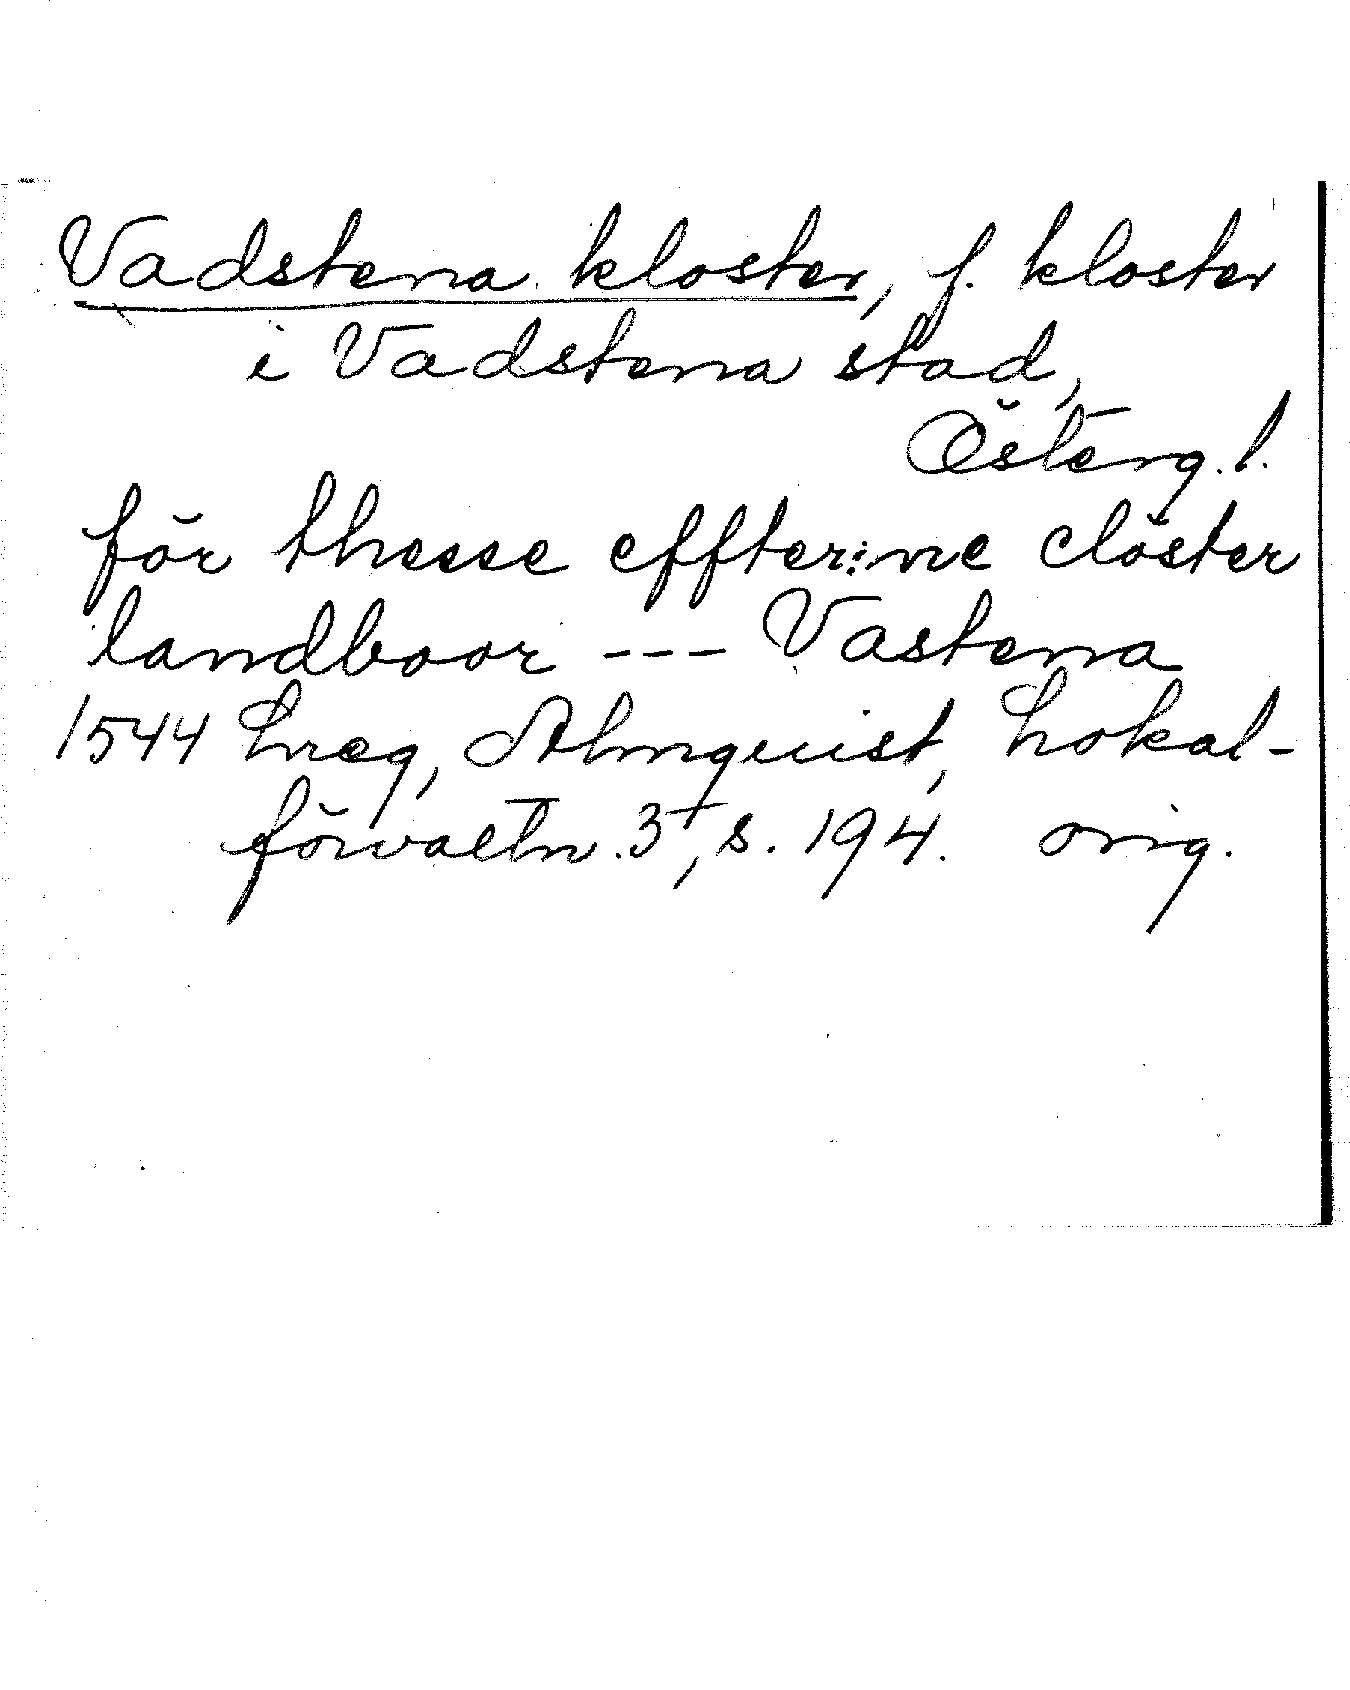 Vadstena kloster, f. kloster
i Vadstena stad,
Österg. l.
för thesse effter:ne clöster
landboor --- Vastena
1544 Lreg, Almquist, Lokal-
förvaltn. 3, s. 194. orig.